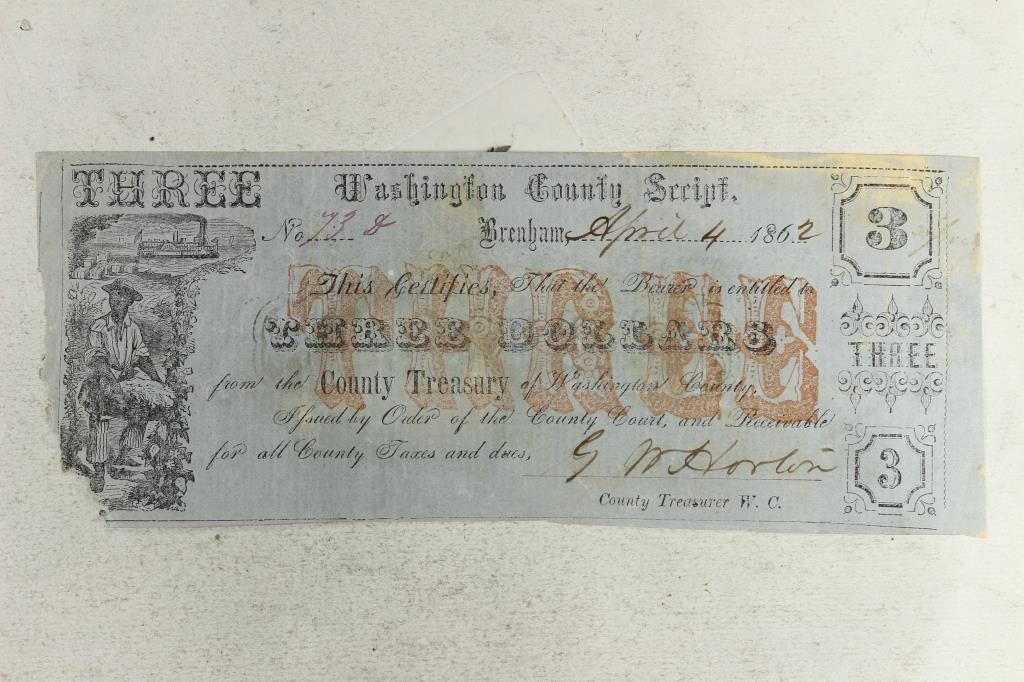 THREE
Washington County Script.
3
No 73 D
Brenham April 4 1862
This Certifies, That the Bearer is entitled to
THREE DOLLARS
THREE
THREE
from the County Treasury of Washington County,
Issued by Order of the County Court, and Receivable
for all County Taxes and dues,
G W Horton
3
County Treasurer W. C.